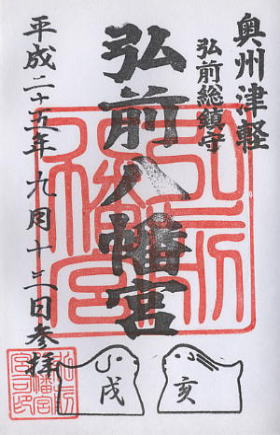 奥州津軽
弘前総鎮守
弘前八幡宮
平成二十五年九月十二日参拝
弘前八幡宮
亥
戌